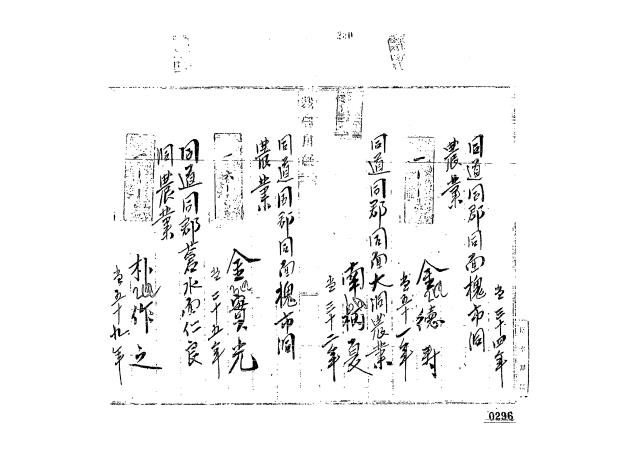 280
当三十四年
同道同郡同面槐市洞
農業
金德
当五十一年
同道同郡同面大洞農業
南 夏
当三十二年
同道同郡同面槐市洞
農業
金 光
当二十五年
同道同郡蒼水面仁良
洞農業
朴 作之
当五十九年
0296